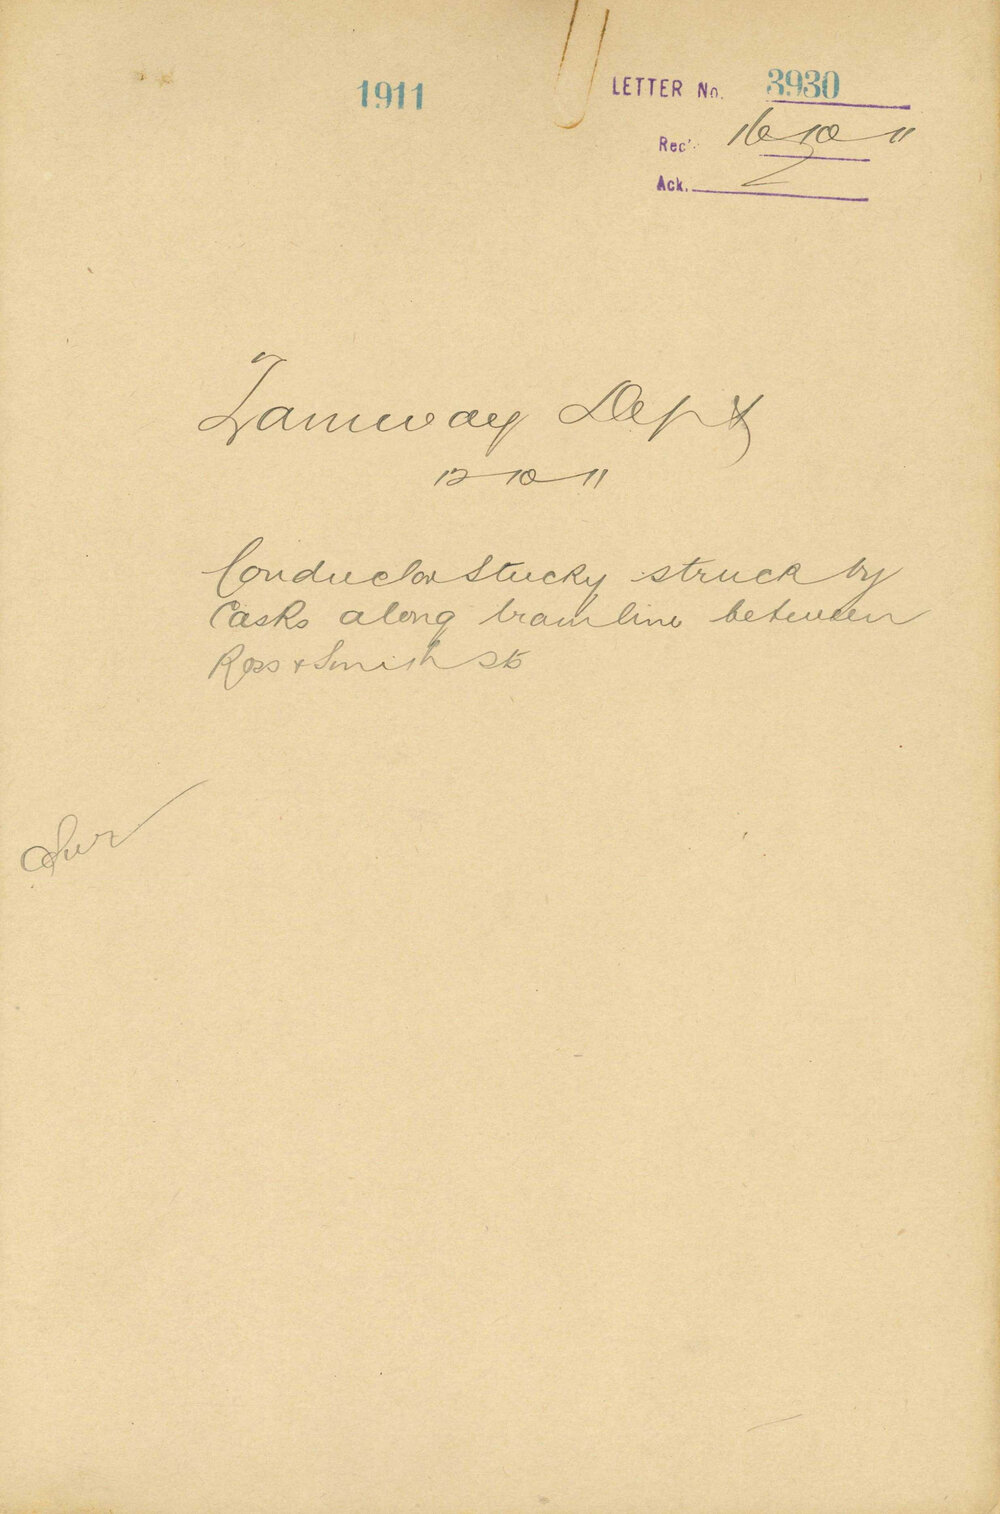 1911
LETTER No. 3930
Rec'. 16-10-11
Ack.
Tamway Dept
12-10-11
Conductor Stucky struck by
Casks along tramline between
Ross & Smith Sts